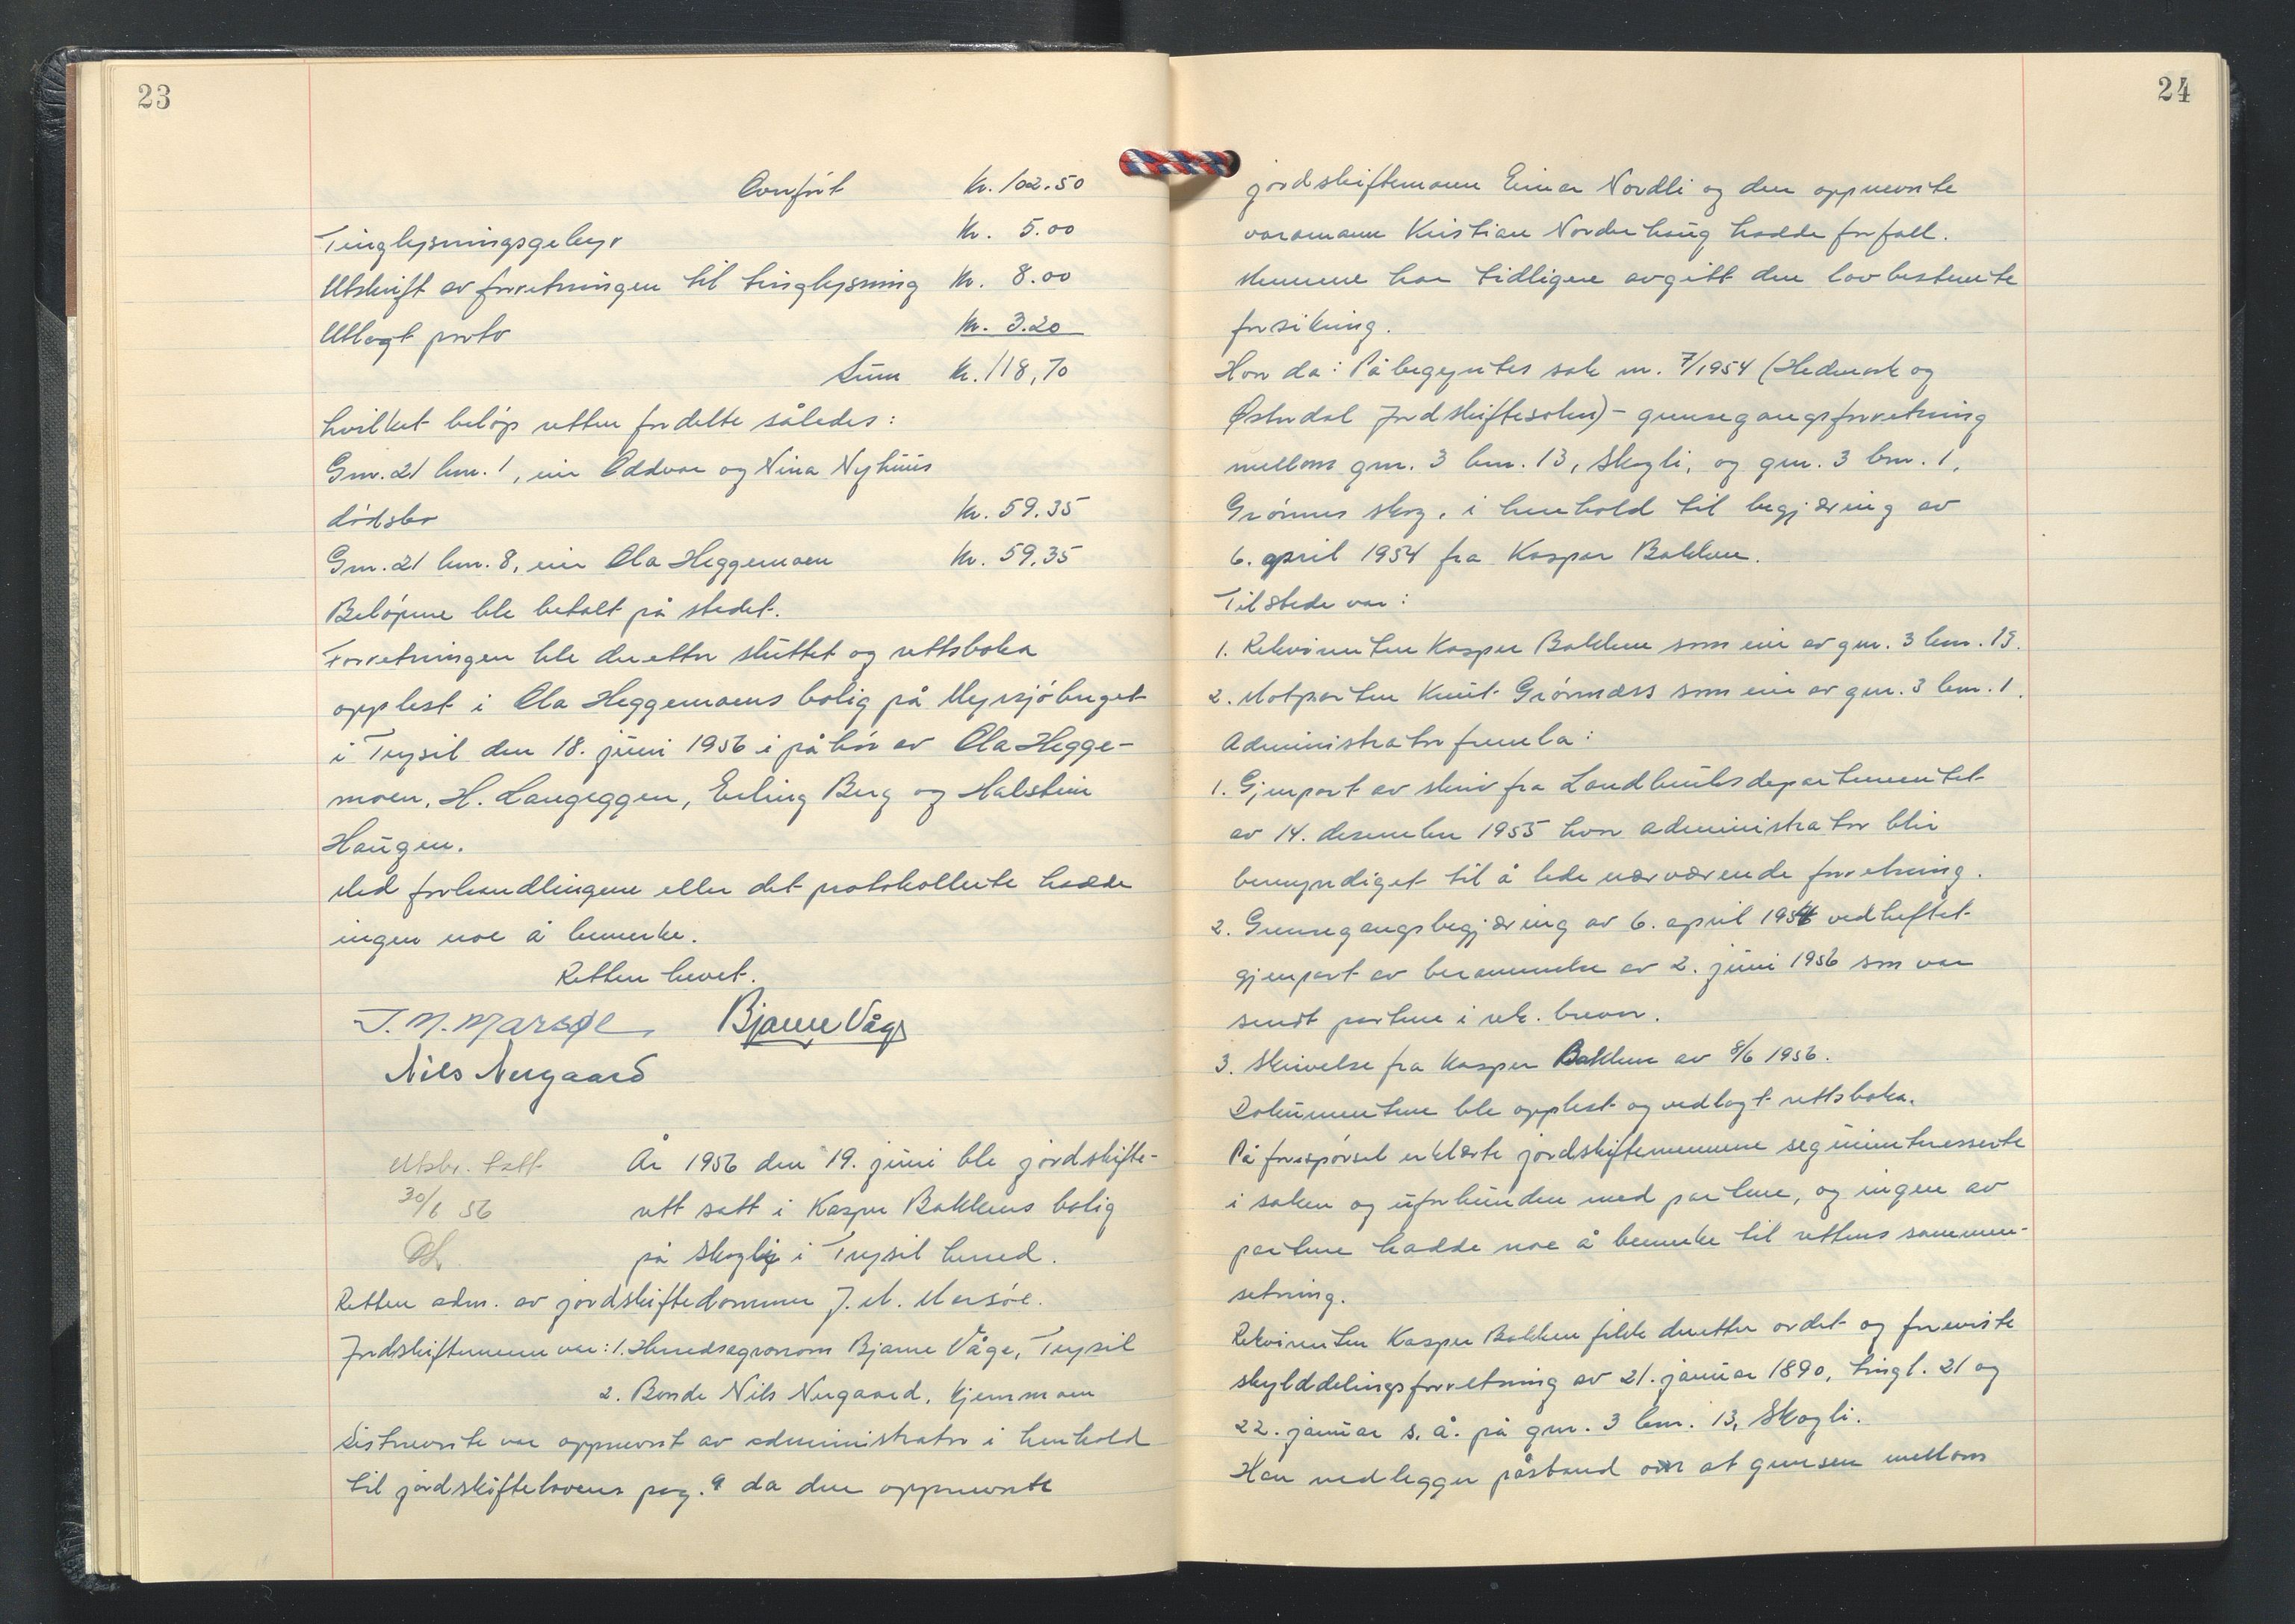 23
Overført Kr. 102.50
Tinglysningsgebyr Kr. 5.00
Utskrift av forretningen til tinglysning Kr. 8.00
Utlagt porto Kr. 3.20
Sum Kr. 118,70
hvilket beløp retten fordelte således:
Gnr. 21 bnr. 1, eier Oddvar og Nina Nyhuus
dødsbo Kr. 59.35
Gnr. 21 bnr. 8, eier Ola Heggemoen Kr. 59.35
Beløpene ble betalt på stedet.
Forretningen ble deretter sluttet og rettsboka
opplest i Ola Heggemoens bolig på Myrsjøberget
i Trysil den 18. juni 1956 i påhør av Ola Hegge-
moen, H. Langeggen, Erling Berg og Halstein
Haugen.
Med forhandlingene eller det protokollerte hadde
ingen noe å bemerke.
Retten hevet.
J. M. Marsøe Bjarne Våge
Nils Nergaard
Utskr. tatt
30/6 56
År 1956 den 19. juni ble jordskifte-
rett satt i Kasper Bakkens bolig
på Skogli i Trysil herred.
Retten adm. av jordskiftedommer J. M. Marsøe.
Jordskiftemenn var: 1. Herredsagronom Bjarne Våge, Trysil
2. Bonde Nils Nergaard, Kjernmoen
Sistnevnte var oppnevnt av administrator i henhold
til jordskiftelovens prg. 9 da den oppnevnte
24
jordskiftemann Einar Nordli og den oppnevnte
varamann Kristian Norderhaug hadde forfall.
Mennene har tidligere avgitt den lovbestemte
forsikring.
Hvor da: Påbegyntes sak nr. 7/1954 (Hedmark og
Østerdal Jordskiftesokn) - grensegangsforretning
mellom gnr. 3 bnr. 13, Skogli, og gnr. 3 bnr. 1,
Grønnes skog, i henhold til begjæring av
6. april 1954 fra Kaspar Bakken.
Tilstede var:
1. Rekvirenten Kasper Bakken som eier av gnr. 3 bnr. 13.
2. Motparten Knut Grønnæss som eier av gnr. 3 bnr. 1.
Administrator fremla:
1. Gjenpart av skriv fra Landbruksdepartementet
av 14. desember 1955 hvor administrator blir
bemyndiget til å lede nærværende forretning.
2. Grensegangsbegjæring av 6. april 1954 vedheftet
gjenpart av berammelse av 2. juni 1956 som var
sendt partene i rek. brever.
3. Skrivelse fra Kasper Bakken av 8/6 1956.
Dokumentene ble opplest og vedlagt rettsboka.
På forespørsel erklærte jordskiftemennene seg uinteresserte
i saken og uforbunden med partene, og ingen av
partene hadde noe å bemerke til rettens sammen-
setning.
Rekvirenten Kasper Bakken fikk deretter ordet og foreviste
skylddelingsforretning av 21. januar 1890, tingl. 21 og
22. januar s. å. på gnr. 3 bnr. 13, Skogli.
Han nedlegger påstand om at grensen mellom